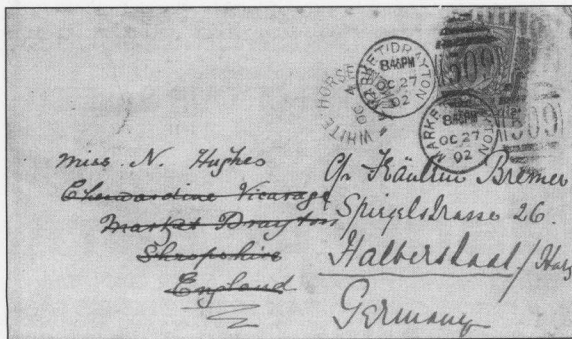 WHITE HORSE
OC 4
MARKET DRAYTON
8.45PM
OC 27
02
509
MARKET DRAYTON
8.45PM
OC 27
02
509
Miss. N. Hughes
Cheswardine Vicarage
Market Drayton
Shropshire
England
C/o Fräulein Bremer
Spiegelstrasse 26.
Halberstadt/Harz
Germany